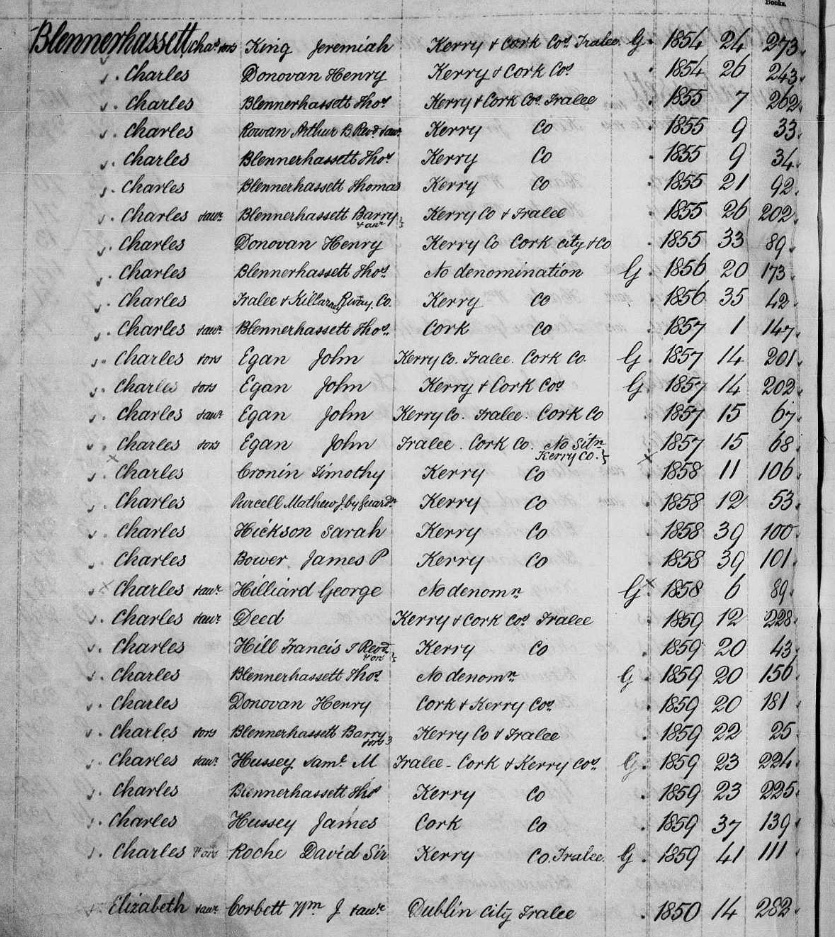 Books.
Blennerhassett Chas. & ors King Jeremiah Kerry & Cork Cos. Tralee G. 1854 24 273.
Charles Donovan Henry Kerry & Cork Cos. 1854 26 243.
Charles Blennerhassett Thos. Kerry & Cork Cos. Tralee 1855 7 262.
Charles Rowan Arthur B Revd. & anr. Kerry Co 1855 9 33.
Charles Blennerhassett Thos. Kerry Co 1855 9 34.
Charles Blennerhassett Thomas Kerry Co 1855 21 92.
Charles & anr. Blennerhassett Barry & anr. Kerry Co & Tralee 1855 26 202.
Charles Donovan Henry Kerry Co Cork City & Co 1855 33 89.
Charles Blennerhassett Thos. No denomination G. 1856 20 173.
Charles Tralee & Killarney Rway. Co. Kerry Co 1856 35 42.
Charles & anr. Blennerhassett Thos. Cork Co 1857 1 147.
Charles & ors Egan John Kerry Co. Tralee. Cork Co. G. 1857 14 201.
Charles & ors Egan John Kerry & Cork Cos. G. 1857 14 202.
Charles & anr. Egan John Kerry Co. Tralee. Cork Co 1857 15 67.
Charles & ors Egan John Tralee. Cork Co. No Sitn. Kerry Co. } 1857 15 68.
x Charles Cronin Timothy Kerry Co x 1858 11 106.
Charles Purcell Mathew J by Guardn. Kerry Co 1858 12 53.
Charles Hickson Sarah Kerry Co 1858 39 100.
Charles Bower James P Kerry Co 1858 39 101.
x Charles & anr. Hilliard George No denomn. G x 1858 6 89.
Charles & anr. Deed Kerry & Cork Cos. Tralee 1859 12 228.
Charles Hill Francis Revd. & Kerry Co 1859 20 43.
Charles Blennerhassett Thos. No denomn. G. 1859 20 156.
Charles Donovan Henry Cork & Kerry Cos. 1859 20 181.
Charles & ors Blennerhassett Barry & ors Kerry Co & Tralee 1859 22 25.
Charles & anr. Hussey Saml. M Tralee - Cork & Kerry Cos. G. 1859 23 224.
Charles Blennerhassett Thos. Kerry Co 1859 23 225.
Charles Hussey James Cork Co 1859 37 139.
Charles & ors Roche David Sir Kerry Co. Tralee. G. 1859 41 111.
Elizabeth & anr. Corbett Wm. J & anr. Dublin City Tralee 1850 14 282.